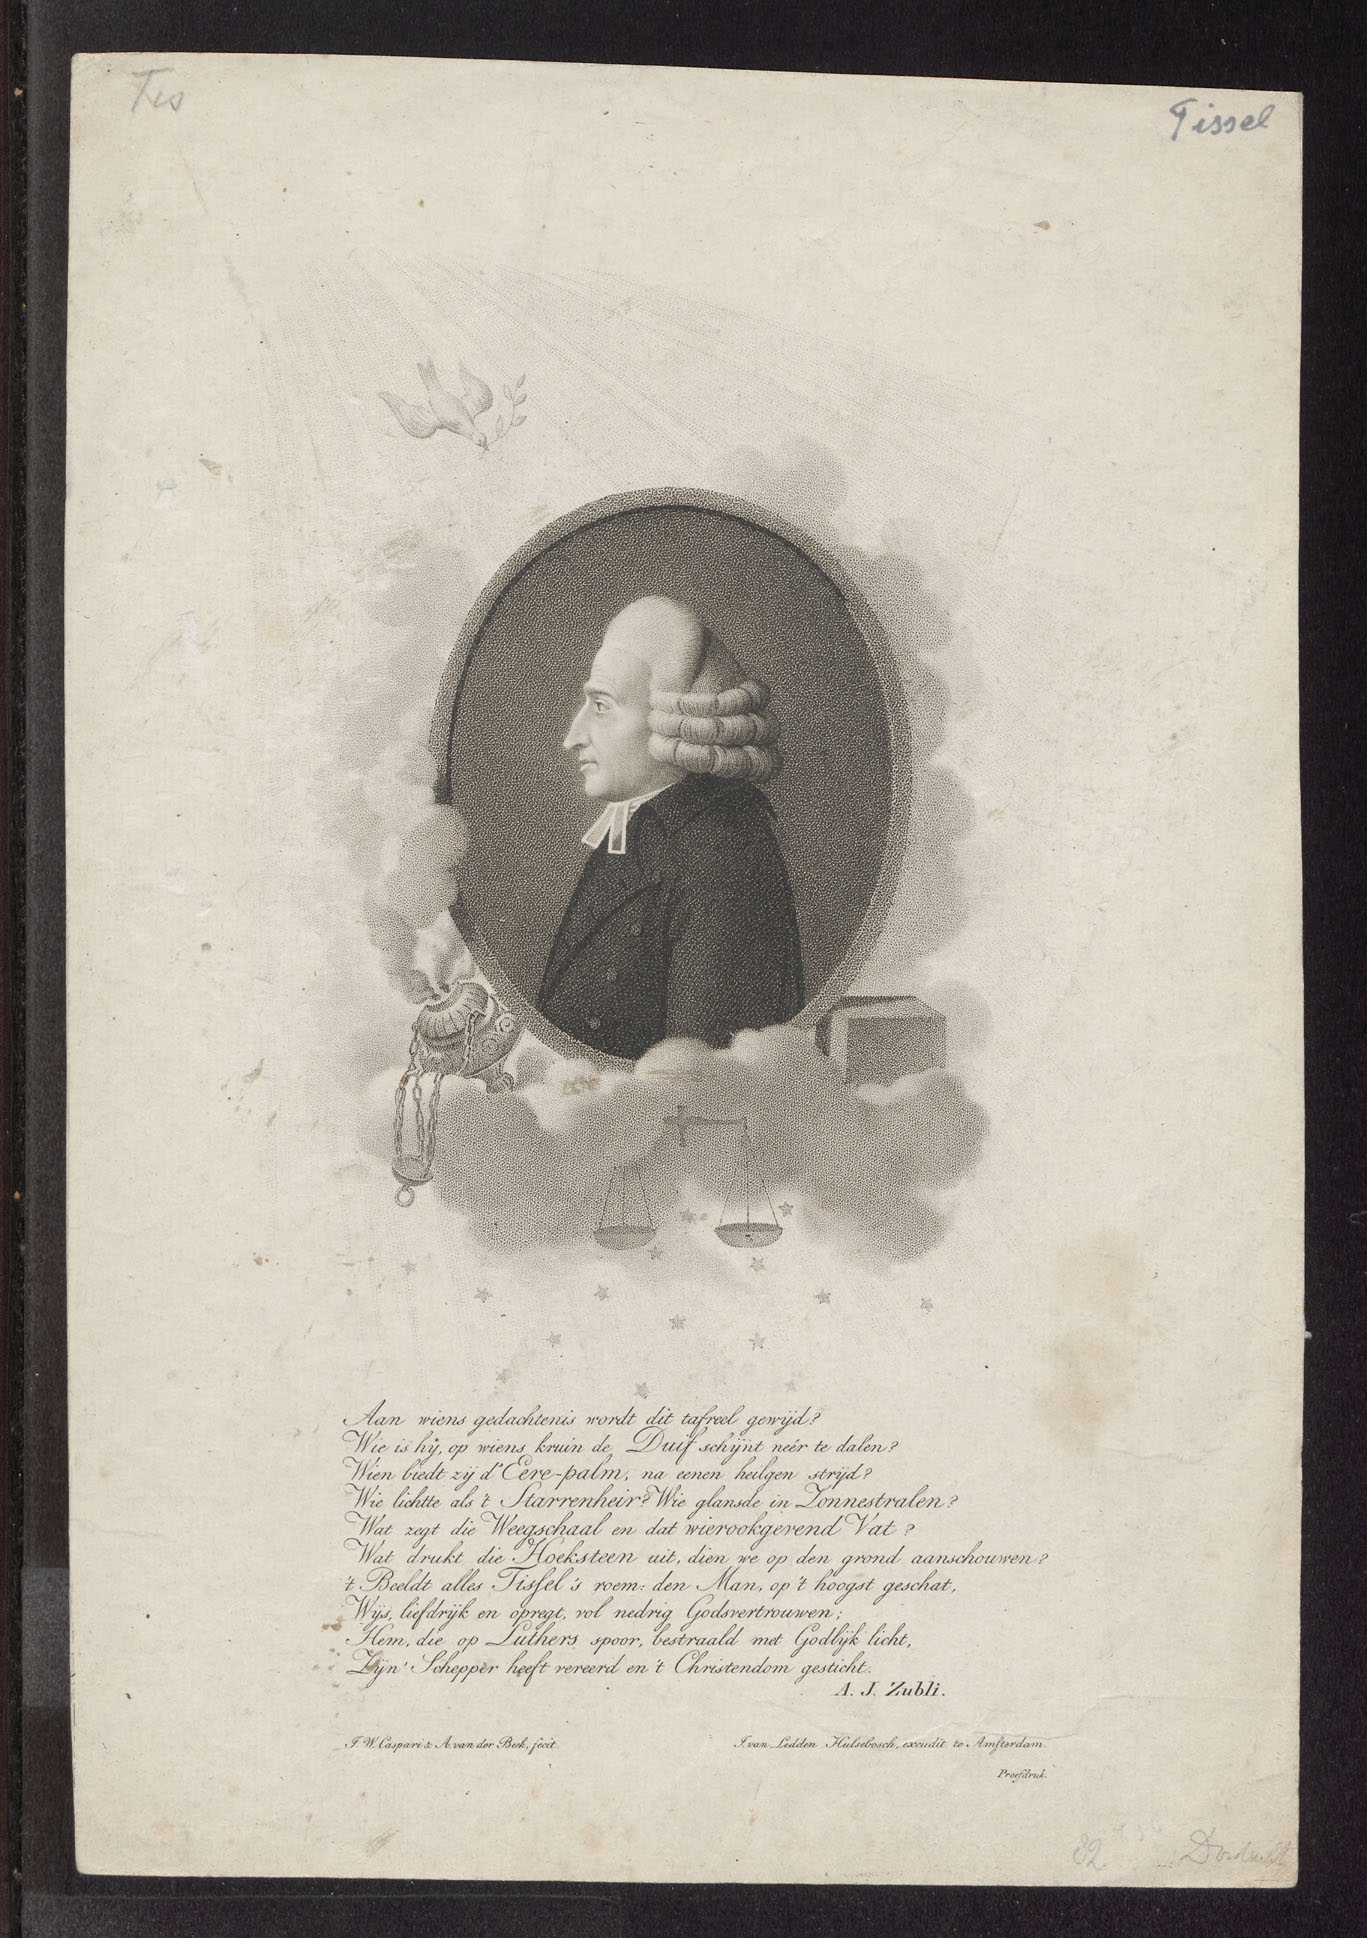 Tis
Tissel
Aan wiens gedachtenis wordt dit tafreel gewijd?
Wie is hij, op wiens kruin de Duif schijnt neêr te dalen?
Wien biedt zij d'Eere-palm, na eenen heilgen strijd?
Wie lichtte als 't Starrenheir? Wie glansde in Zonnestralen?
Wat zegt die Weegschaal en dat wierookgevend Vat?
Wat drukt die Hoeksteen uit, dien we op den grond aanschouwen?
't Beeldt alles Tissel's roem: den Man, op 't hoogst geschat,
Wijs, liefdrijk en opregt, vol nedrig Godsvertrouwen;
Hem, die op Luthers spoor, bestraald met Godlijk licht,
Zijn' Schepper heeft vereerd en 't Christendom gesticht.
A. J. Zubli.
F. W. Caspari & A. van der Beek, fecit.
J. van Ledden Hulsebosch, excudit te Amsterdam.
Proefdruk.
82
Dordrecht